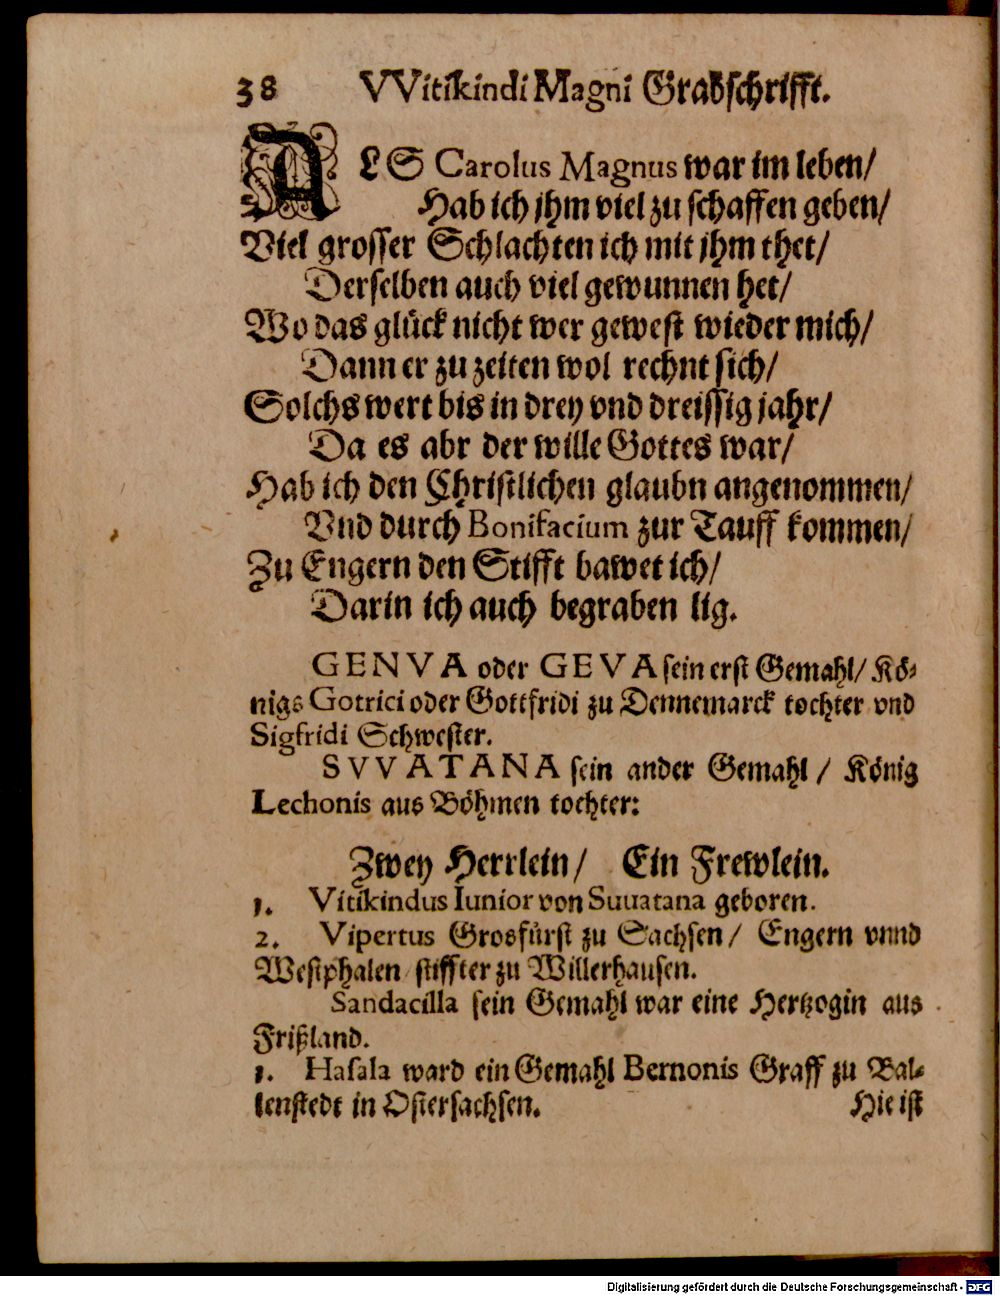 38 VVitikindi Magni Grabschrifft.
ALS Carolus Magnus war im leben/
Hab ich jhm viel zu schaffen geben/
Viel grosser Schlachten ich mit jhm thet/
Derselben auch viel gewunnen het/
Wo das glück nicht wer gewest wieder mich/
Dann er zu zeiten wol rechnt sich/
Solchs wert bis in drey vnd dreissig jahr/
Da es abr der wille Gottes war/
Hab ich den Christlichen glaubn angenommen/
Vnd durch Bonifacium zur Tauff kommen/
Zu Engern den Stifft bawet ich/
Darin ich auch begraben lig.
GENVA oder GEVA sein erst Gemahl/ Kö-
nigs Gotrici oder Gottfridi zu Dennemarck tochter vnd
Sigfridi Schwester.
SVVATANA sein ander Gemahl / König
Lechonis aus Böhmen tochter:
Zwey Herrlein/ Ein Frewlein.
1. Vitikindus Iunior von Suuatana geboren.
2. Vipertus Grosfürst zu Sachsen/ Engern vnnd
Westphalen/ stiffter zu Willerhausen.
Sandacilla sein Gemahl war eine Hertzogin aus
Frißland.
1. Hasala ward ein Gemahl Bernonis Graff zu Bal-
lenstedt in Ostersachsen.
Hie ist
Digitalisierung gefördert durch die Deutsche Forschungsgemeinschaft - DFG